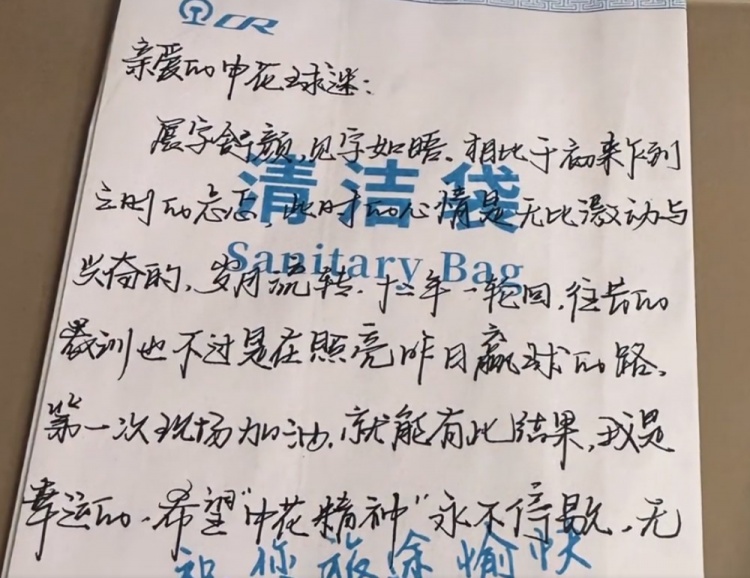 CR
亲爱的申花球迷：
展字舒颜，见字如晤。相比于初来乍到
之时的忐忑，此时的心情是无比激动与
清洁袋
兴奋的，岁月流转，十二年一轮回，往昔的
Sanitary Bag
教训也不过是在照亮昨日赢球的路。
第一次现场加油，就能有此结果，我是
幸运的。希望“申花精神”永不停歇，无
祝您旅途愉快